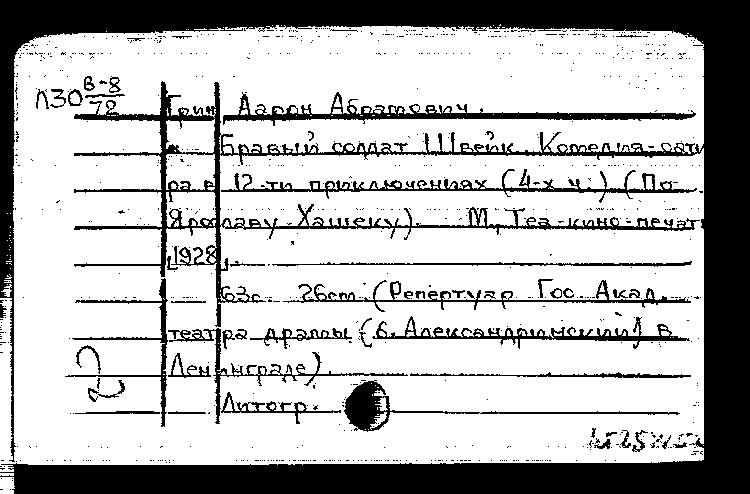 Л30 В-8/72
Грин, Аарон Абрамович.
Бравый солдат Швейк. Комедия-сати
ра в 12-ти приключениях (4-х ч.) (По
Ярославу Хашеку). М., Теа-кино-печать
[1928].
63с. 26см. (Репертуар Гос. Акад.
театра драмы (б. Александринский) в
Ленинграде).
Литогр.
2